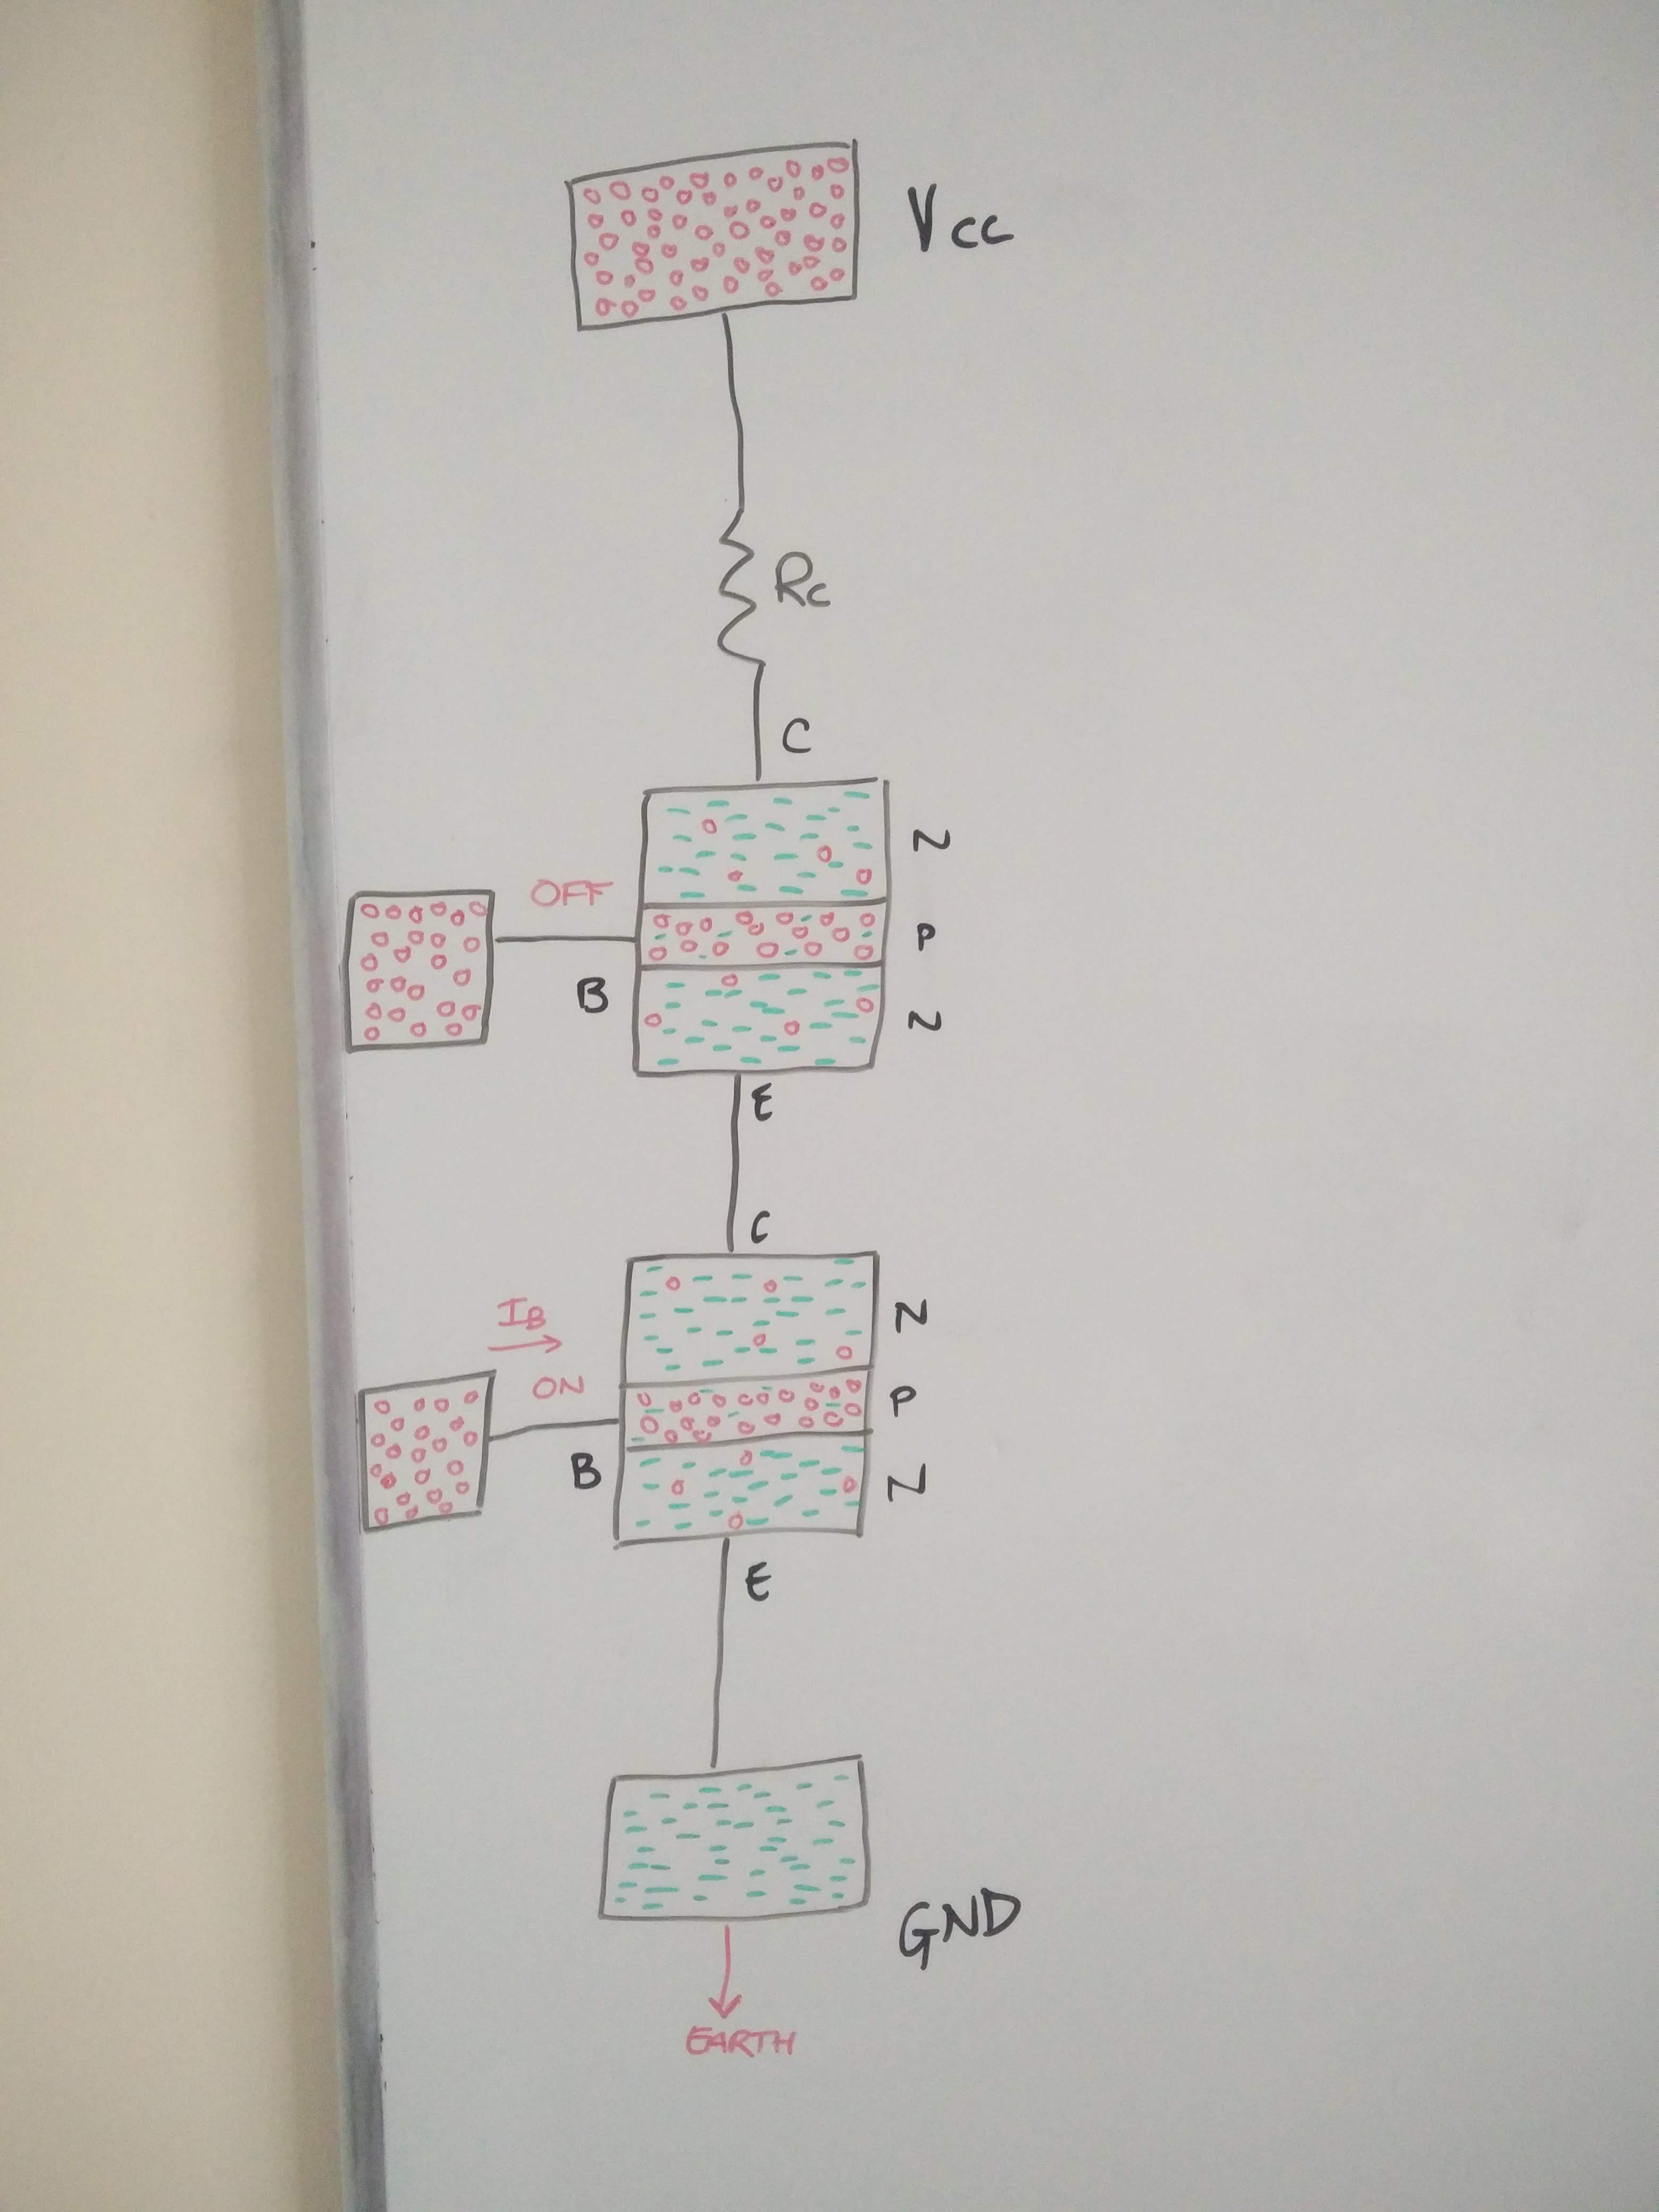 Vcc
Rc
C
N
OFF
P
B
N
E
C
IB
N
ON
P
B
N
E
GND
EARTH